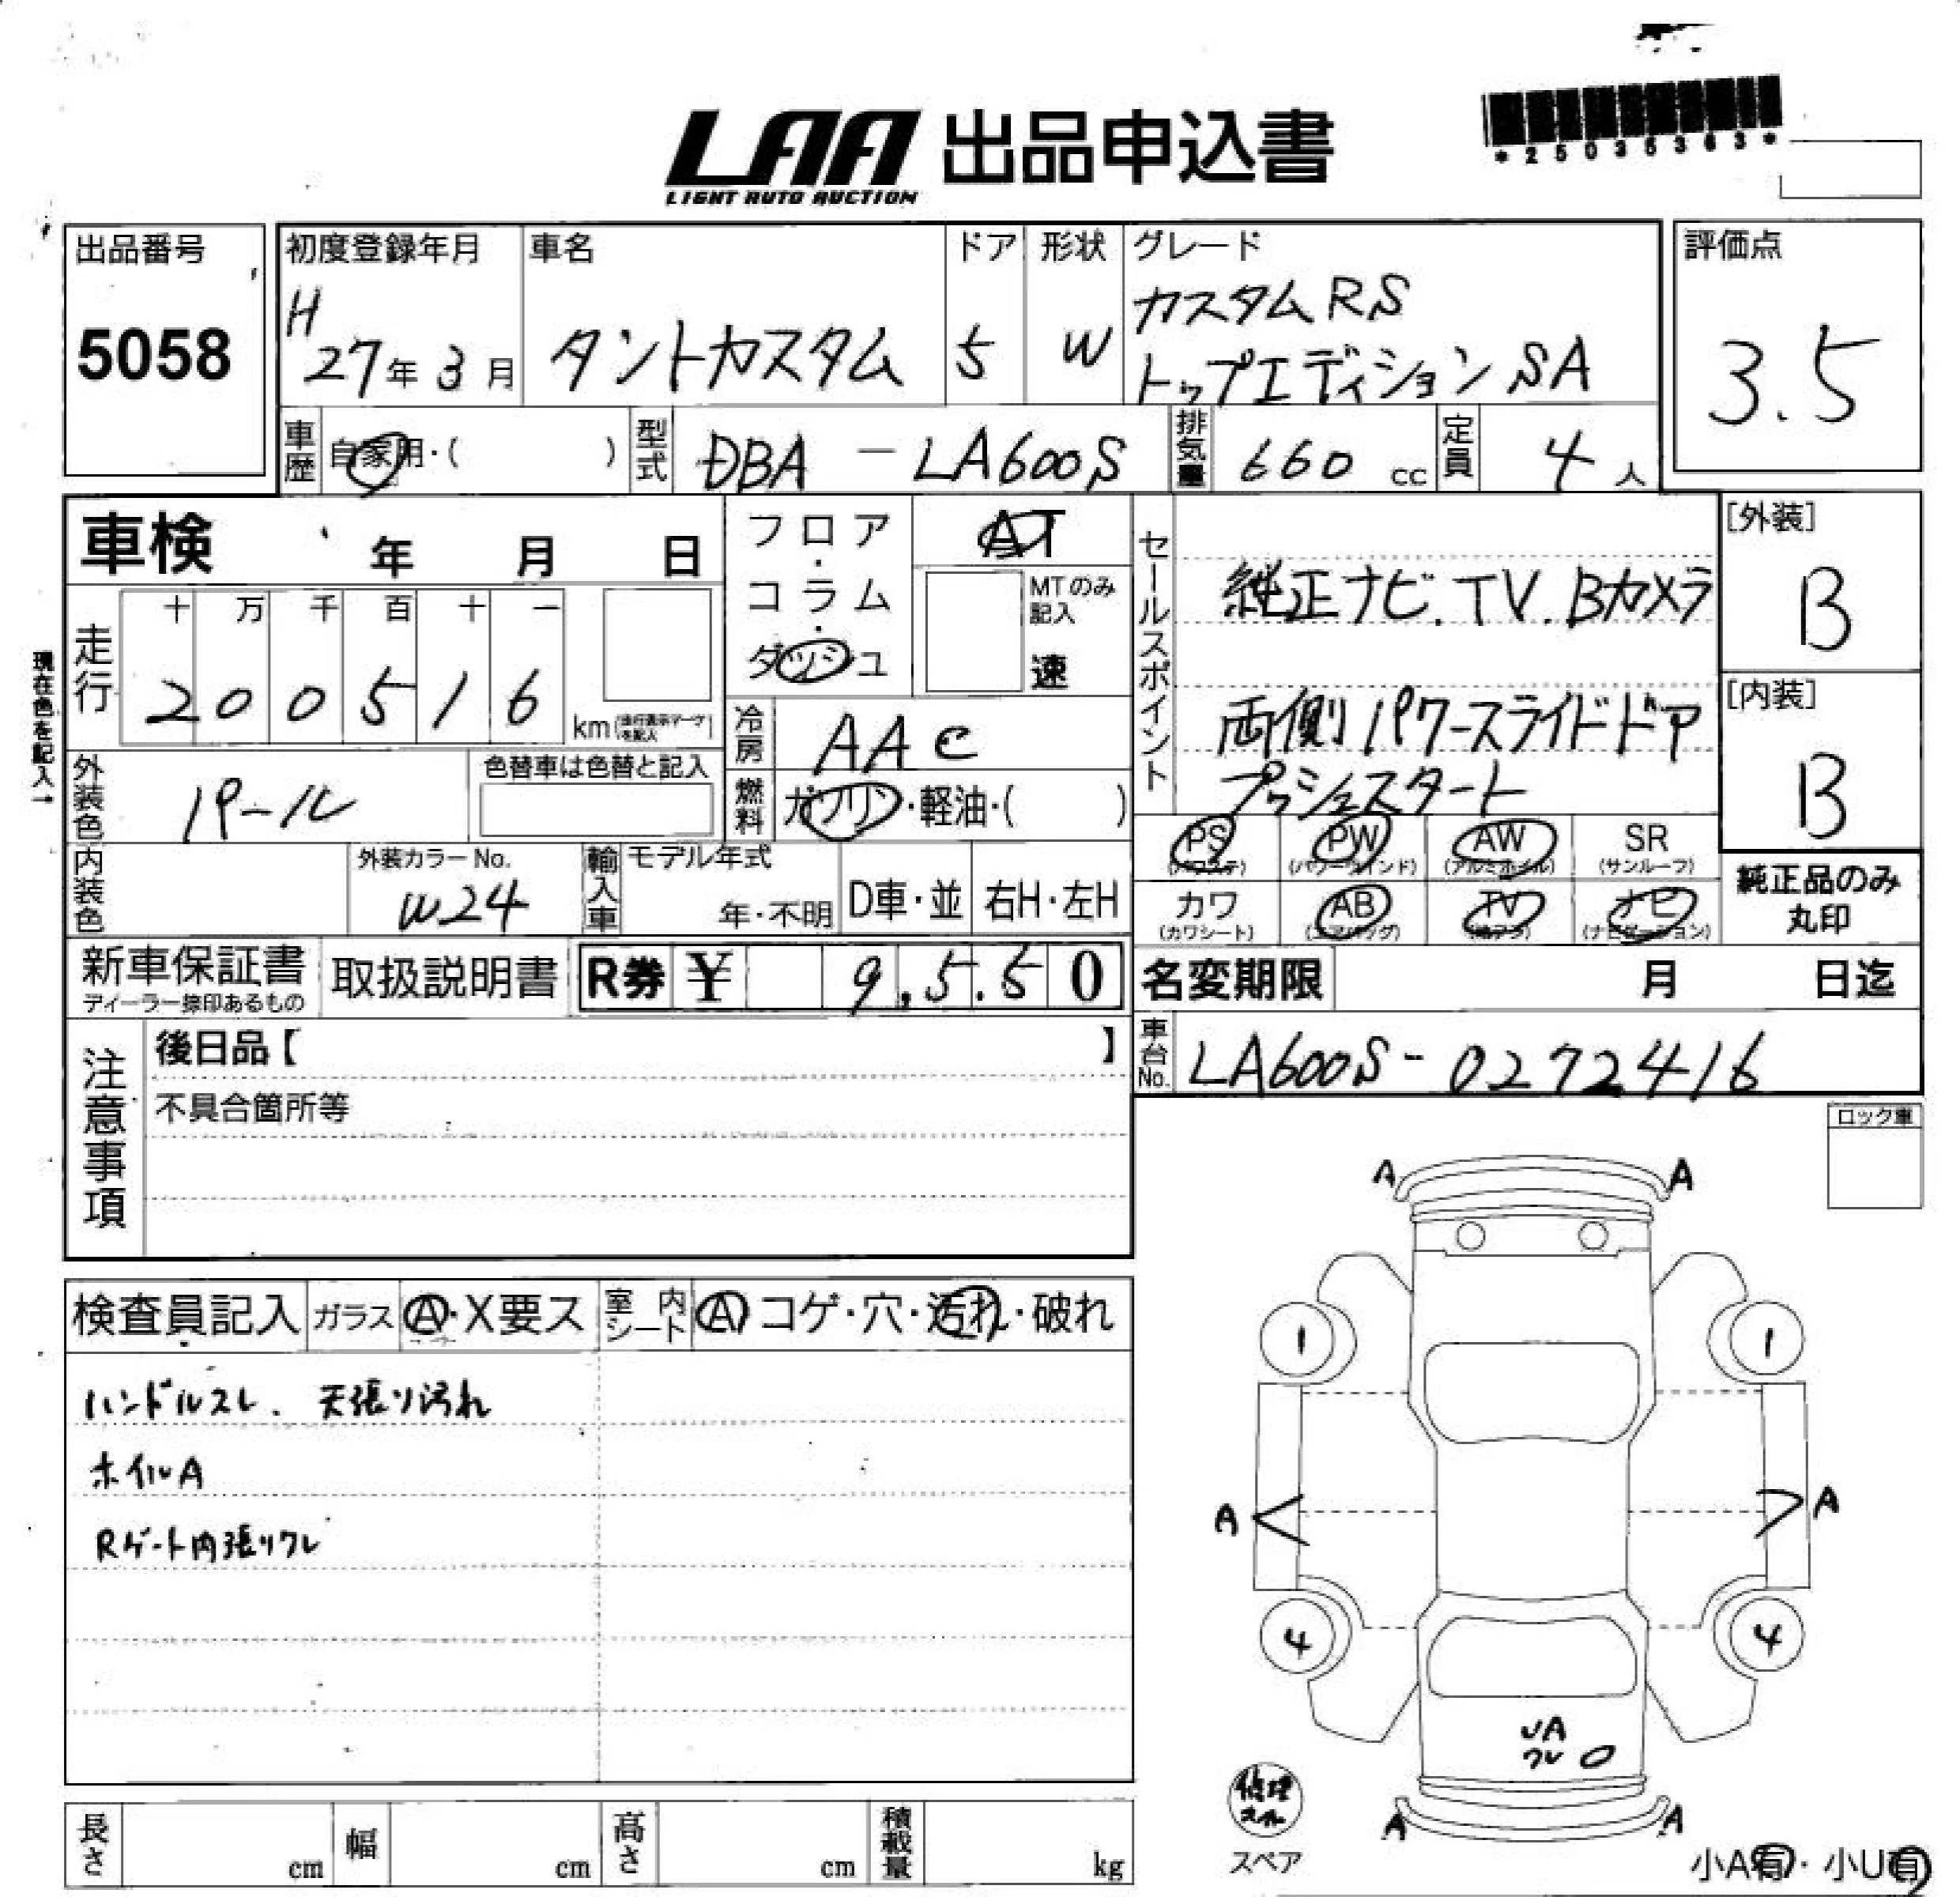 LAA 出品申込書
LIGHT AUTO AUCTION
*25035363*
出品番号
5058
初度登録年月
H
27年 3月
車名
タントカスタム
ドア
5
形状
W
グレード
カスタムRS
トップエディションSA
評価点
3.5
車歴
自家用・( )
型式
DBA - LA600S
排気量
660 cc
定員
4人
車検 年 月 日
フロア・コラム・ダッシュ
AT
MTのみ記入
速
セールスポイント
純正ナビ.TV.Bカメラ
両側パワースライドドア
プッシュスタート
[外装]
B
[内装]
B
現在色を記入→
走行
十 万 千 百 十 一
2 0 0 5 1 6
km(走行表示マークを記入)
冷房
AAC
燃料
ガソリン・軽油・( )
外装色
パール
色替車は色替と記入
内装色
外装カラーNo.
W24
輸入車
モデル年式
年・不明
D車・並
右H・左H
PS
(パワステ)
PW
(パワーウインド)
AW
(アルミホイル)
SR
(サンルーフ)
カワ
(カワシート)
AB
(エアバッグ)
TV
ナビ
(ナビゲーション)
純正品のみ
丸印
新車保証書
ディーラー捺印あるもの
取扱説明書
R券 ¥ 9,5.50
名変期限 月 日迄
車台No.
LA600S-0272416
注意事項
後日品【 】
不具合箇所等
ロック車
検査員記入
ガラス
A・X要ス
室内シート
A コゲ・穴・汚れ・破れ
ハンドルスレ. 天張り汚れ
ホイルA
Rゲート内張りワレ
A A
1 1
A A
4 4
UA
ワレ
A A
修理
キット
スペア
小A有・小U有
長さ cm
幅 cm
高さ cm
積載量 kg